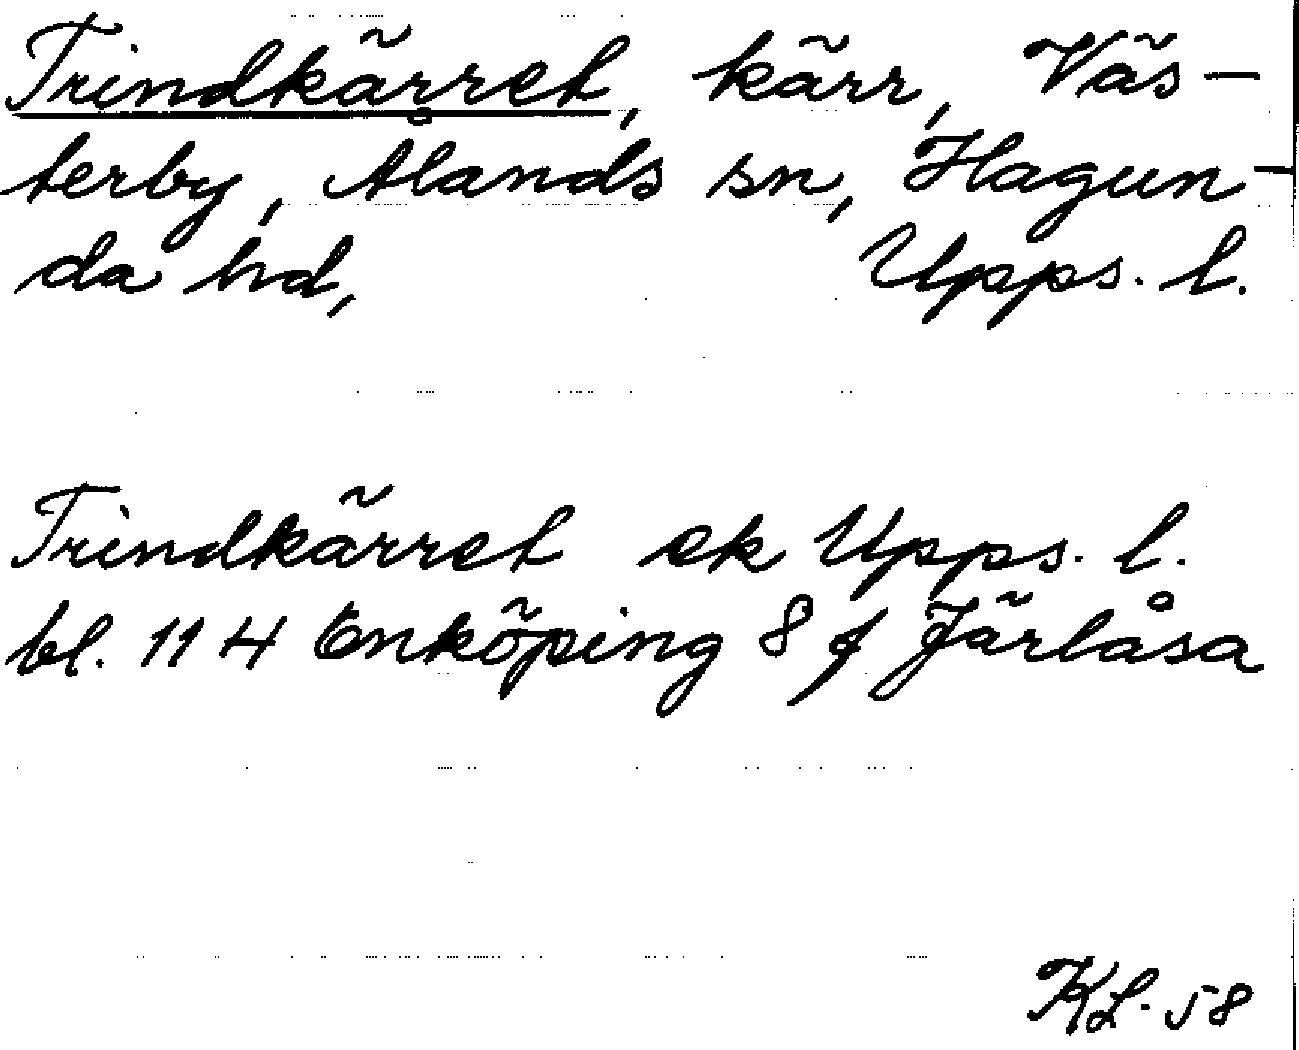 Trindkärret, kärr, Väs-
terby, Ålands sn, Hagun-
da hd, Upps. l.
Trindkärret ek Upps. l.
bl. 11 H Enköping 8 f Järlåsa
KL. 58